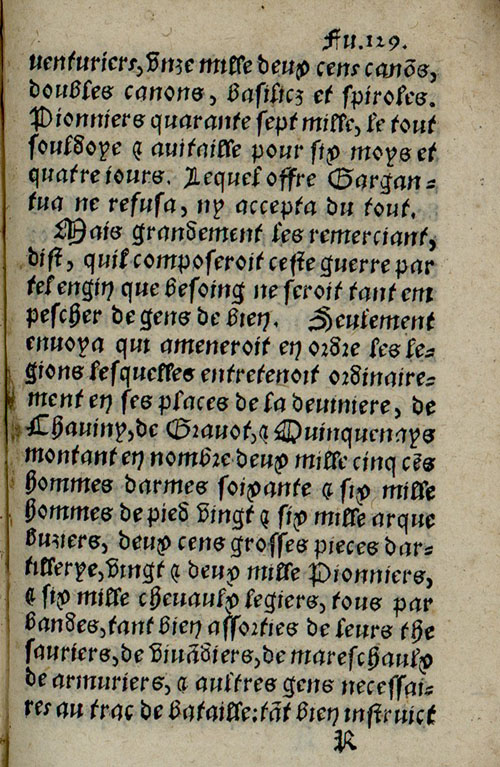 Fu.129.
uenturiers, vnze mille deux cens canõs,
doubles canons, basilicz et spiroles.
Pionniers quarante sept mille, le tout
souldoye & auitaille pour six moys et
quatre iours. Lequel offre Gargan-
tua ne refusa, ny accepta du tout.
Mais grandement les remerciant,
dist, quil composeroit ceste guerre par
tel engin que besoing ne seroit tant em
pescher de gens de bien. Seulement
enuoya qui ameneroit en ordre les le-
gions lesquelles entretenoit ordinaire-
ment en ses places de la deuiniere, de
Chauiny, de Grauot, & Quinquenays
montant en nombre deux mille cinq cẽs
hommes darmes soixante & six mille
hommes de pied vingt & six mille arque
buziers, deux cens grosses pieces dar-
tillerye, vingt & deux mille Pionniers,
& six mille cheuaulx legiers, tous par
bandes, tant bien assorties de leurs the
sauriers, de viuãdiers, de mareschaulx
de armuriers, & aultres gens necessai-
res au trac de bataille: tãt bien instruict
R